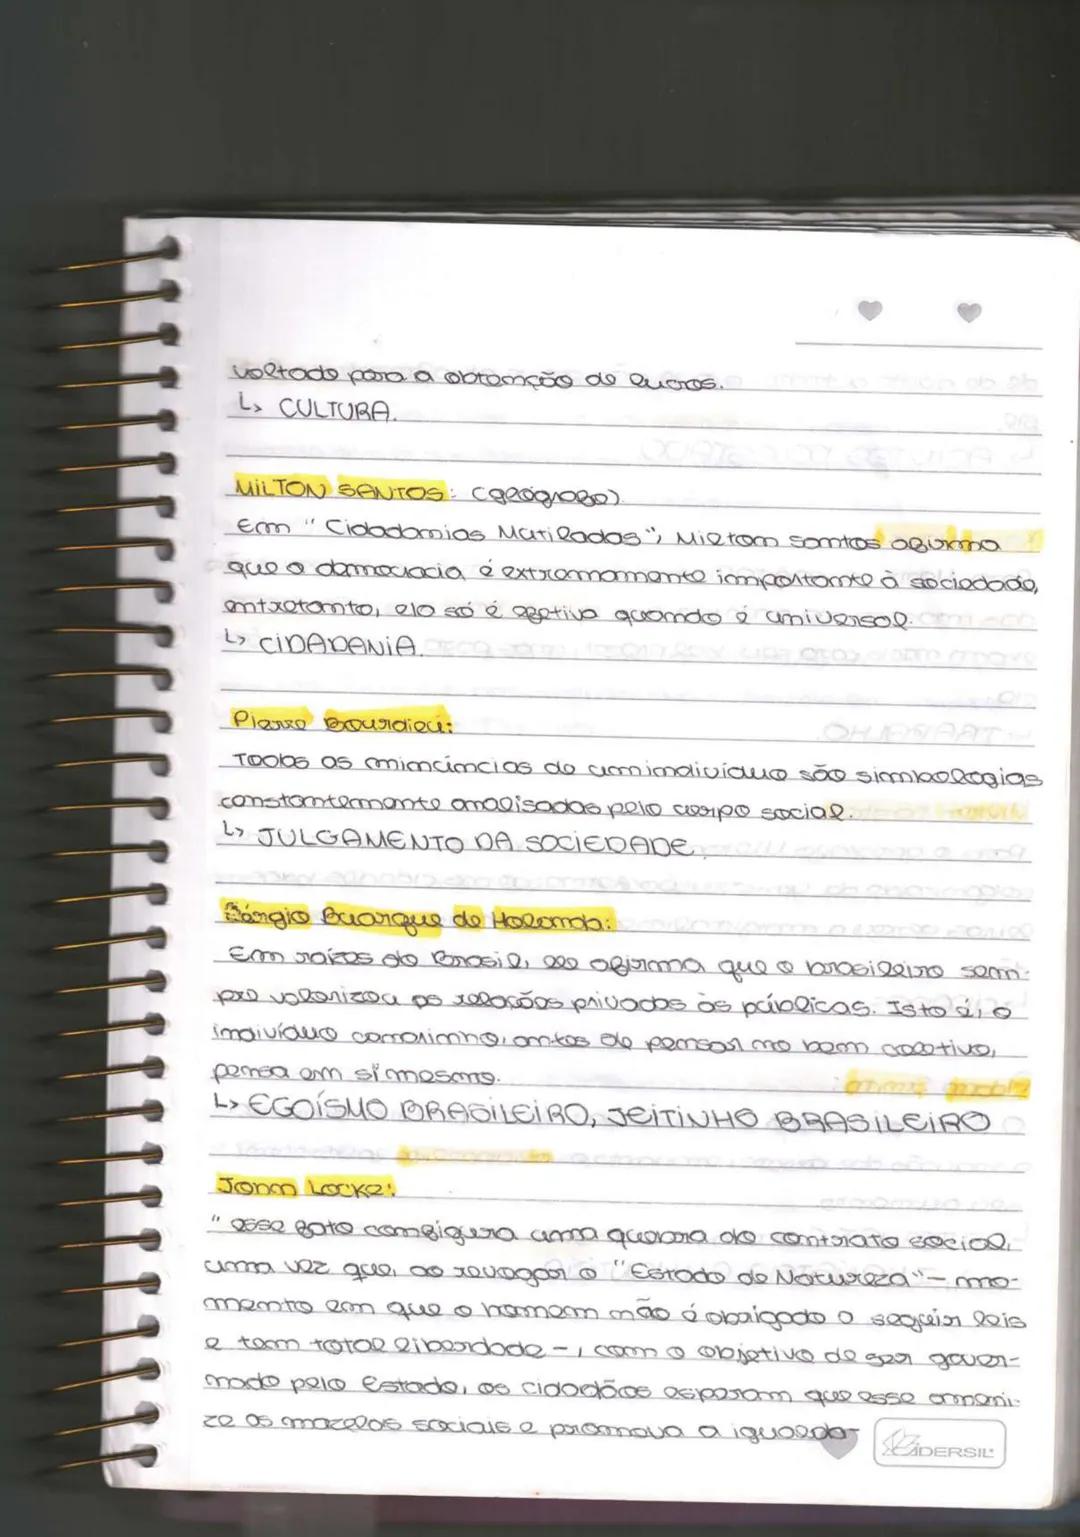 voltado para a obtenção de lucros.
↳ CULTURA.
MILTON SANTOS: (geógrafo)
Em "Cidadanias Mutiladas", Milton Santos afirma
que a democracia é extremamente importante à sociedade,
entretanto, ela só é efetiva quando é universal.
↳ CIDADANIA.
Pierre Bourdieu:
Todas as minúncias do um indivíduo são simbologias
constantemente analisadas pelo corpo social.
↳ JULGAMENTO DA SOCIEDADE.
Sérgio Buarque de Holanda:
Em raízes do Brasil, ele afirma que o brasileiro sem-
pre valorizou as relações privadas às públicas. Isto é, o
indivíduo canarinho, antes de pensar no bem coletivo,
pensa em sí mesmo.
↳ EGOÍSMO BRASILEIRO, JEITINHO BRASILEIRO
Jonh Locke:
"esse fato configura uma quebra do contrato social,
uma vez que, ao revogar o "Estado de Natureza" - mo-
mento em que o homem não é obrigado a seguir leis
e tem total liberdade -, com o objetivo de ser gover-
nado pelo Estado, os cidadãos esperam que esse ameni-
ze as mazelas sociais e promova a igualda-
IDERSIL